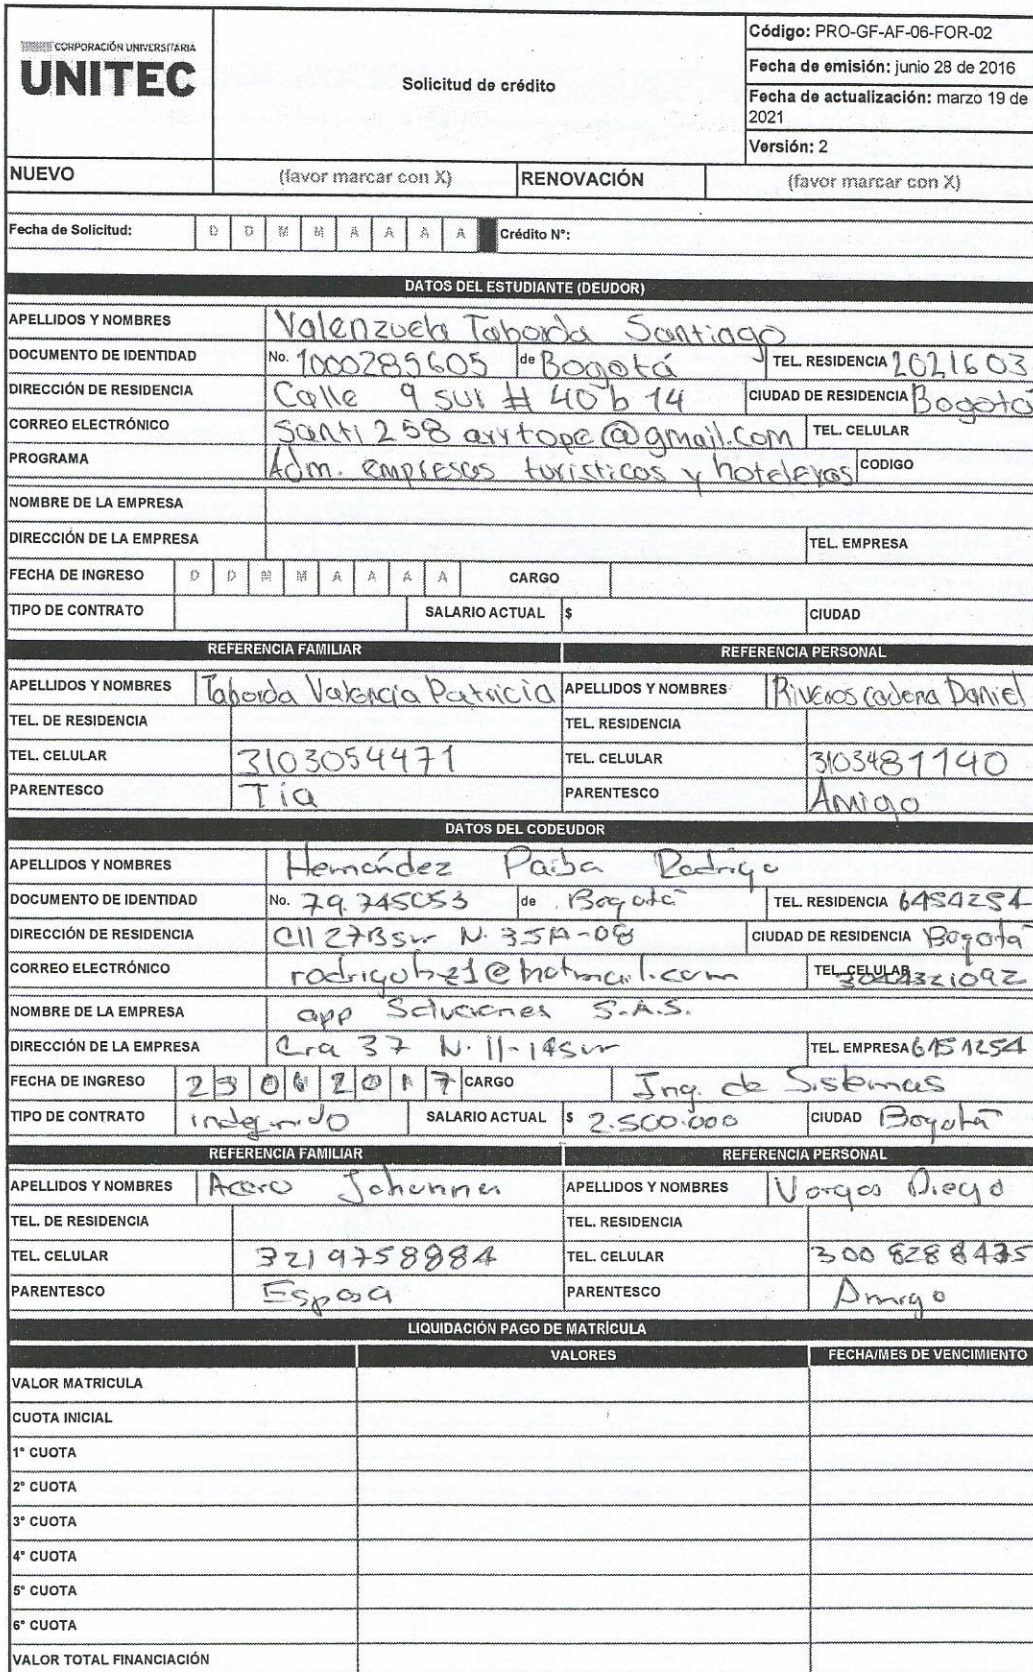 CORPORACIÓN UNIVERSITARIA
UNITEC
Solicitud de crédito
Código: PRO-GF-AF-06-FOR-02
Fecha de emisión: junio 28 de 2016
Fecha de actualización: marzo 19 de
2021
Versión: 2
NUEVO (favor marcar con X) RENOVACIÓN (favor marcar con X)
Fecha de Solicitud: D D M M A A A A Crédito N°:
DATOS DEL ESTUDIANTE (DEUDOR)
APELLIDOS Y NOMBRES Valenzuela Taborda Santiago
DOCUMENTO DE IDENTIDAD No. 1000289605 de Bogotá TEL. RESIDENCIA 2021603
DIRECCIÓN DE RESIDENCIA Calle 9 sur # 40 b 14 CIUDAD DE RESIDENCIA Bogotá
CORREO ELECTRÓNICO santi258arrtope@gmail.com TEL. CELULAR
PROGRAMA Adm. empresas turisticas y hoteleras CODIGO
NOMBRE DE LA EMPRESA
DIRECCIÓN DE LA EMPRESA TEL. EMPRESA
FECHA DE INGRESO D D M M A A A A CARGO
TIPO DE CONTRATO SALARIO ACTUAL $ CIUDAD
REFERENCIA FAMILIAR REFERENCIA PERSONAL
APELLIDOS Y NOMBRES Taborda Valencia Patricia APELLIDOS Y NOMBRES Riveros cadena Daniel
TEL. DE RESIDENCIA TEL. RESIDENCIA
TEL. CELULAR 3103054471 TEL. CELULAR 3103481140
PARENTESCO Tía PARENTESCO Amigo
DATOS DEL CODEUDOR
APELLIDOS Y NOMBRES Hernández Paiba Rodrigo
DOCUMENTO DE IDENTIDAD No. 79.745053 de Bogotá TEL. RESIDENCIA
DIRECCIÓN DE RESIDENCIA Cll 27B sur N. 35A-08 CIUDAD DE RESIDENCIA Bogotá
CORREO ELECTRÓNICO rodrigohz1@hotmail.com TEL. CELULAR
NOMBRE DE LA EMPRESA app Soluciones S.A.S.
DIRECCIÓN DE LA EMPRESA Cra 37 N. 11-14 sur TEL. EMPRESA
FECHA DE INGRESO CARGO Ing. de Sistemas
TIPO DE CONTRATO indefinido SALARIO ACTUAL $ 2.500.000 CIUDAD Bogotá
REFERENCIA FAMILIAR REFERENCIA PERSONAL
APELLIDOS Y NOMBRES Acero Johanna APELLIDOS Y NOMBRES Vargas Diego
TEL. DE RESIDENCIA TEL. RESIDENCIA
TEL. CELULAR 3219758884 TEL. CELULAR 300 8288435
PARENTESCO Esposa PARENTESCO Amigo
LIQUIDACIÓN PAGO DE MATRÍCULA
VALORES FECHA/MES DE VENCIMIENTO
VALOR MATRICULA
CUOTA INICIAL
1° CUOTA
2° CUOTA
3° CUOTA
4° CUOTA
5° CUOTA
6° CUOTA
VALOR TOTAL FINANCIACIÓN